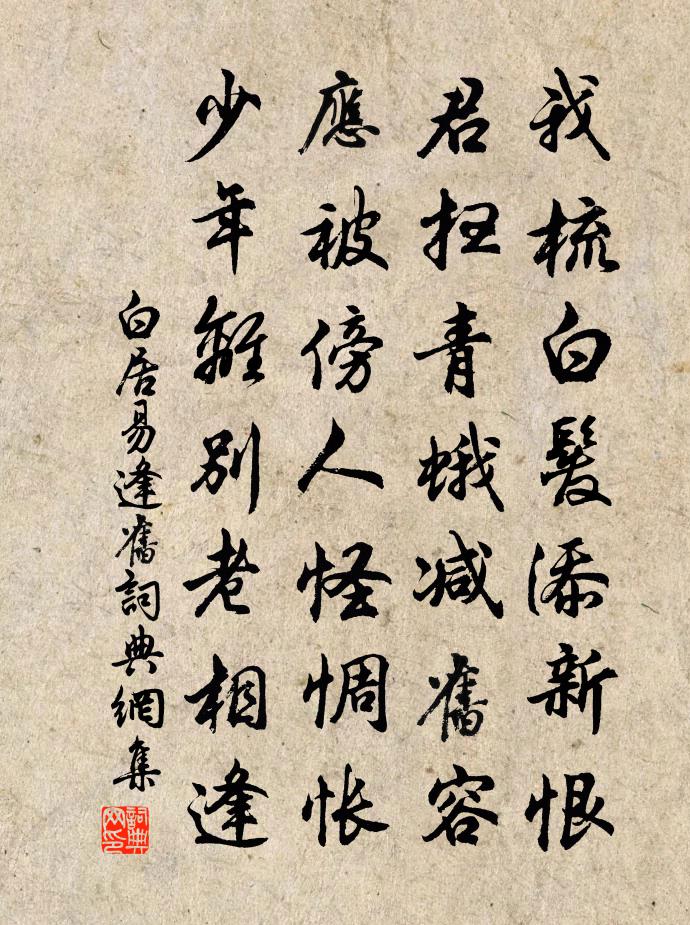 我梳白髮添新恨
君扫青蛾減舊容
應被傍人怪惆怅
少年離別老相逢
白居易逢舊詞典網集
詞典
网印